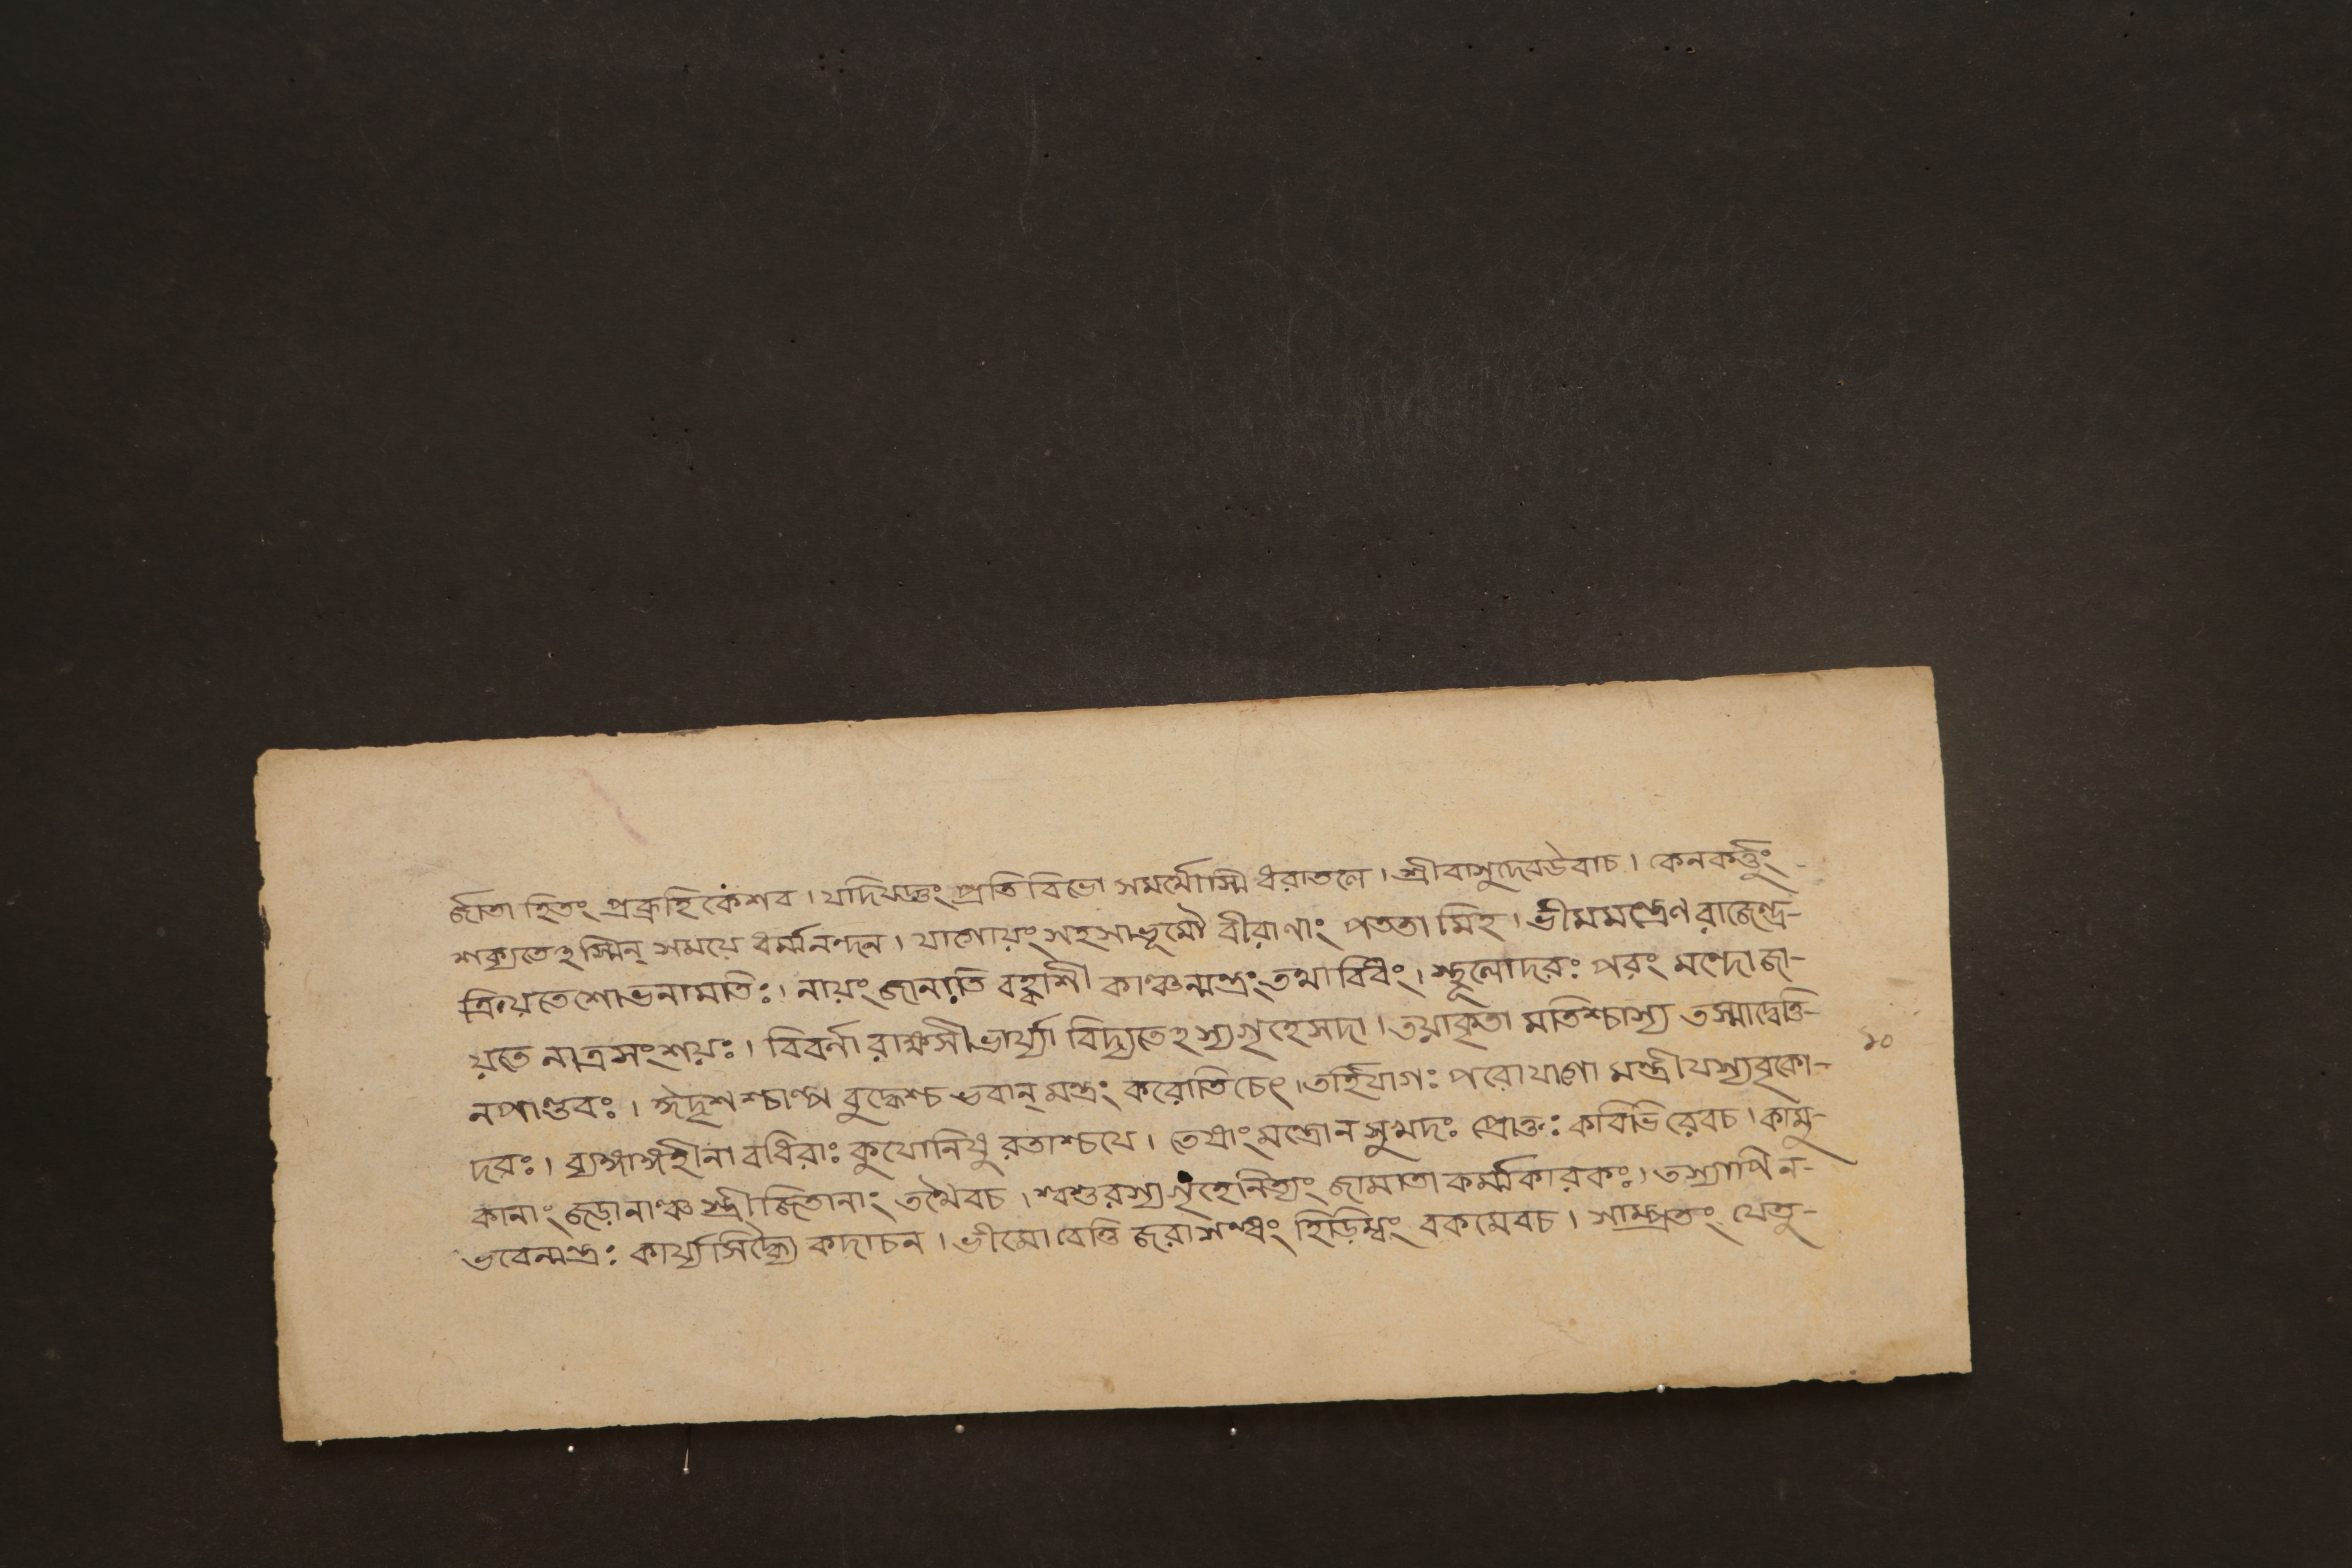 র্জাতা হিতং প্রব্রূহি কেশব। যদি যজ্ঞং প্রতি বিভো সমর্থোস্মি ধরাতলে। শ্রীবাসুদেবউবাচ। কেনকর্ত্তুং-
শক্যতেঽস্মিন্ সময়ে ধর্ম্মনন্দন। যাগোয়ং সহসাভূমৌ বীরাণাং পততা মিহ। ভীমমন্ত্রেণ রাজেন্দ্র-
ক্রিয়তে শোভনামতিঃ। নায়ং জানাতি বহ্বাশী কাঞ্চন্মন্ত্রং তথা বিধং। স্থূলোদরঃ পরং মন্দো জা-
য়তে নাত্র সংশয়ঃ। বিবর্না রাক্ষসী ভার্য্যা বিদ্যতেঽস্যগৃহেসদা। তয়াকৃতা মতিশ্চাস্য তস্মাদ্বেত্তি-
নপাণ্ডবঃ। ঈদৃশ শ্চাল্প বুদ্ধেশ্চ ভবান্ মন্ত্রং করোতিচেৎ। তর্হিযাগঃ পরোযাগো মন্ত্রী যস্যবৃকো-
দরঃ। ব্যঙ্গাঙ্গহীনা বধিরাঃ কুযোনিষু রতাশ্চযে। তেষাং মন্ত্রোন সুখদঃ প্রোক্তঃ কবিভি রেবচ। কামু-
কানাং জড়ানাঞ্চ স্ত্রীজিতানাং তথৈবচ। শ্বশুরস্য গৃহেনিত্যং জামাতা কর্ম্মকারকঃ। তস্যাপি ন-
ভবেন্মন্ত্রঃ কার্য্যসিদ্ধ্যৈ কদাচন। ভীমো বেত্তি জরাসন্ধং হিড়িম্বং বকমেবচ। সাম্প্রতং যেতু-
১০